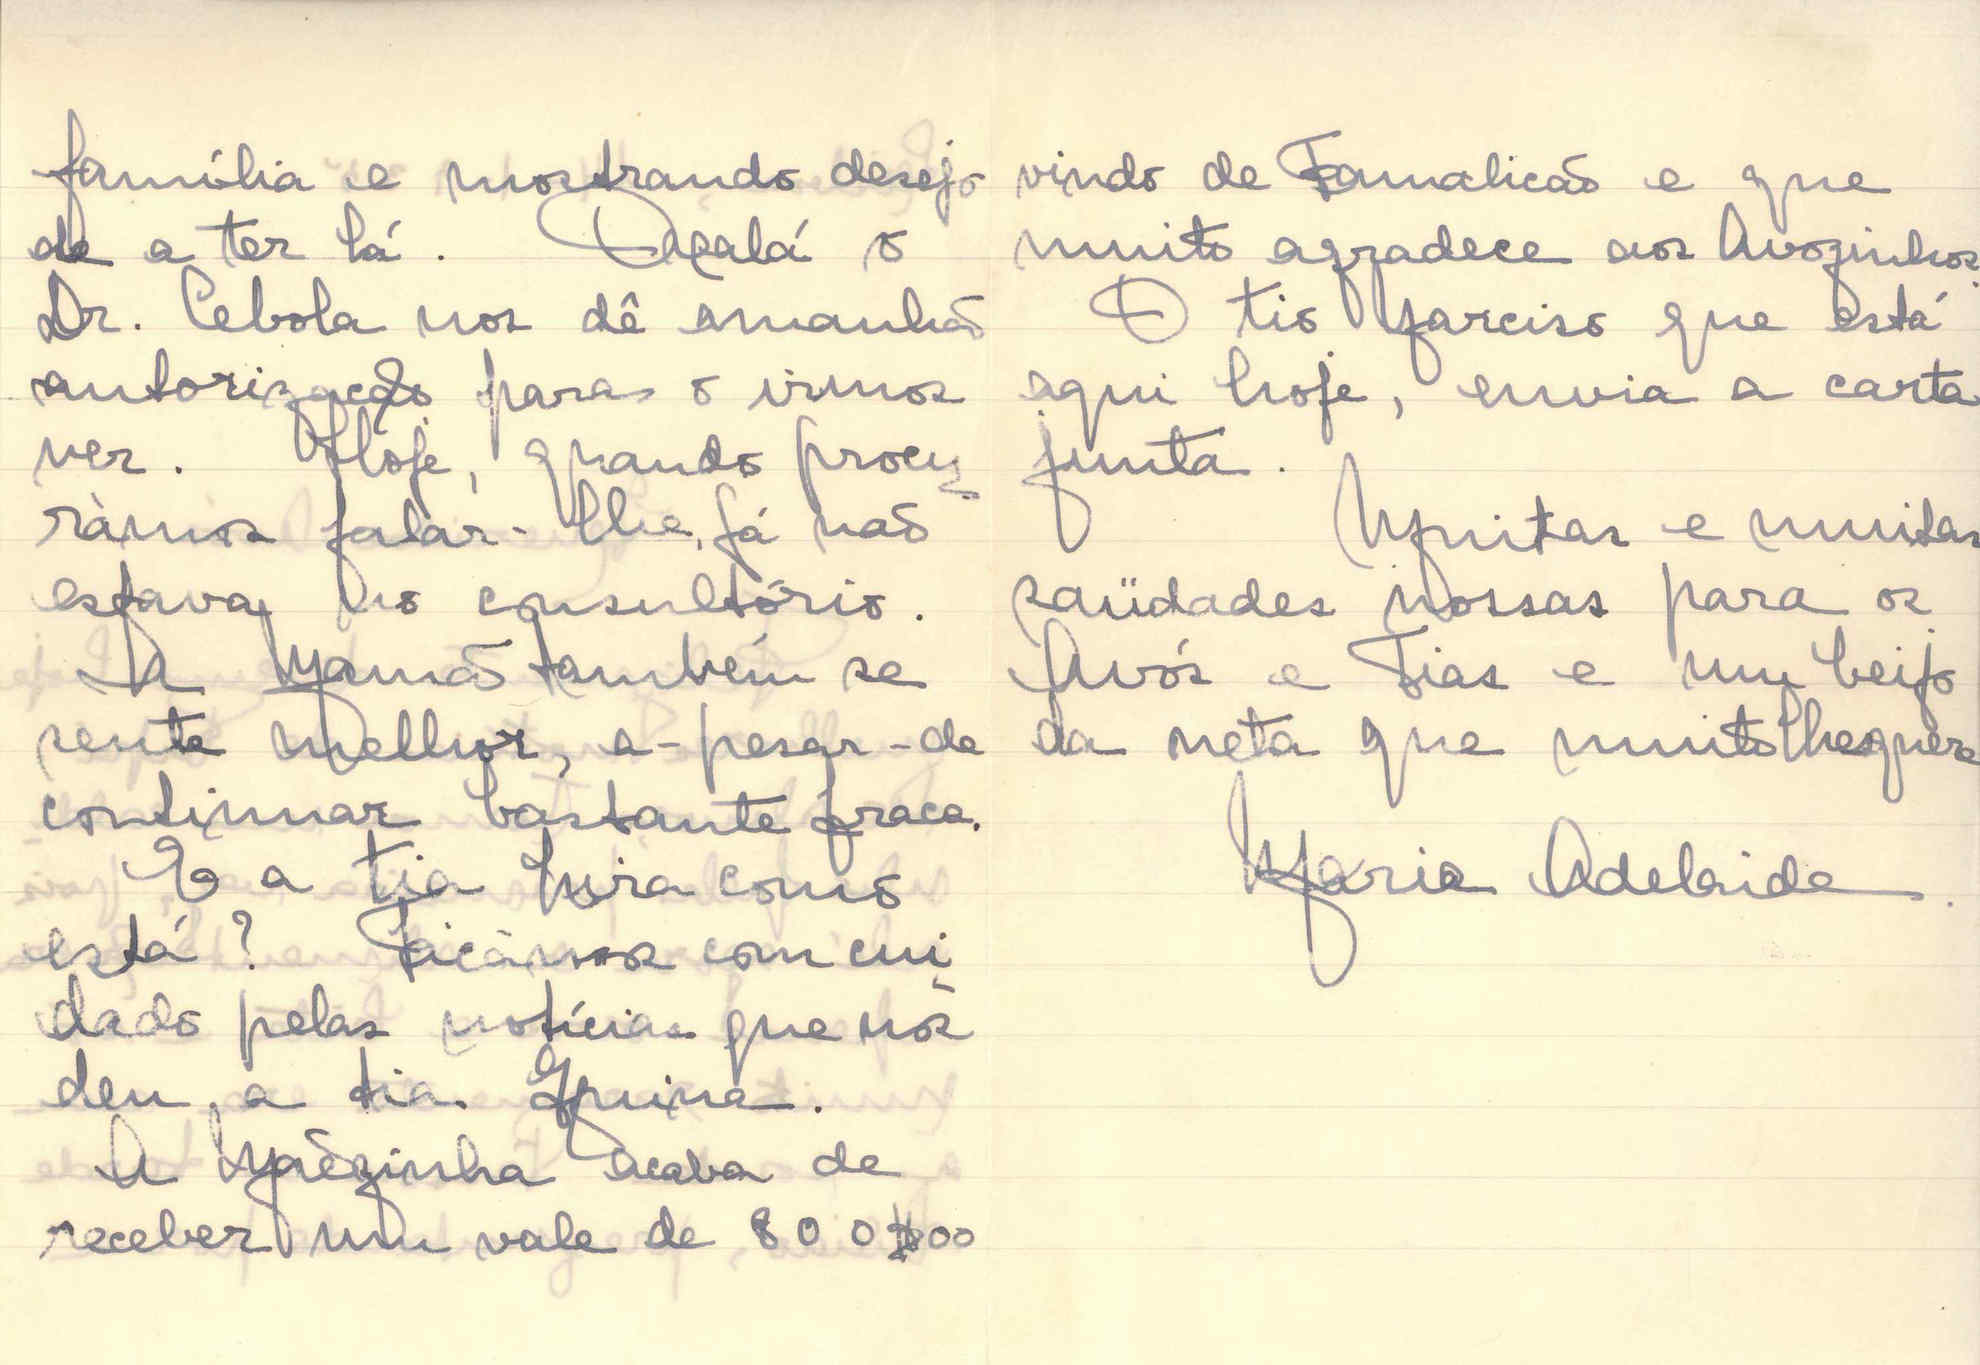 família e mostrando desejo
de a ter lá. Oxalá o
Dr. Cebola nos dê amanhã
autorização para o irmos
ver. Hoje, quando procu-
ràmos falar-lhe, já não
estava no consultório.
A Mamã também se
sente melhor, a-pesar-de
continuar bastante fraca.
E a tia Lura como
está? Ficámos com cui-
dado pelas notícias que nos
deu, a tia.
A Mãezinha acaba de
receber um vale de 800$00
vindo de Famalicão e que
muito agradece aos Avozinhos.
O tio Narciso que está
aqui hoje, envia a carta
junta.
Muitas e muitas
saüdades nossas para os
Avós e Tias e um beijo
da neta que muito lhes quere
Maria Adelaide.